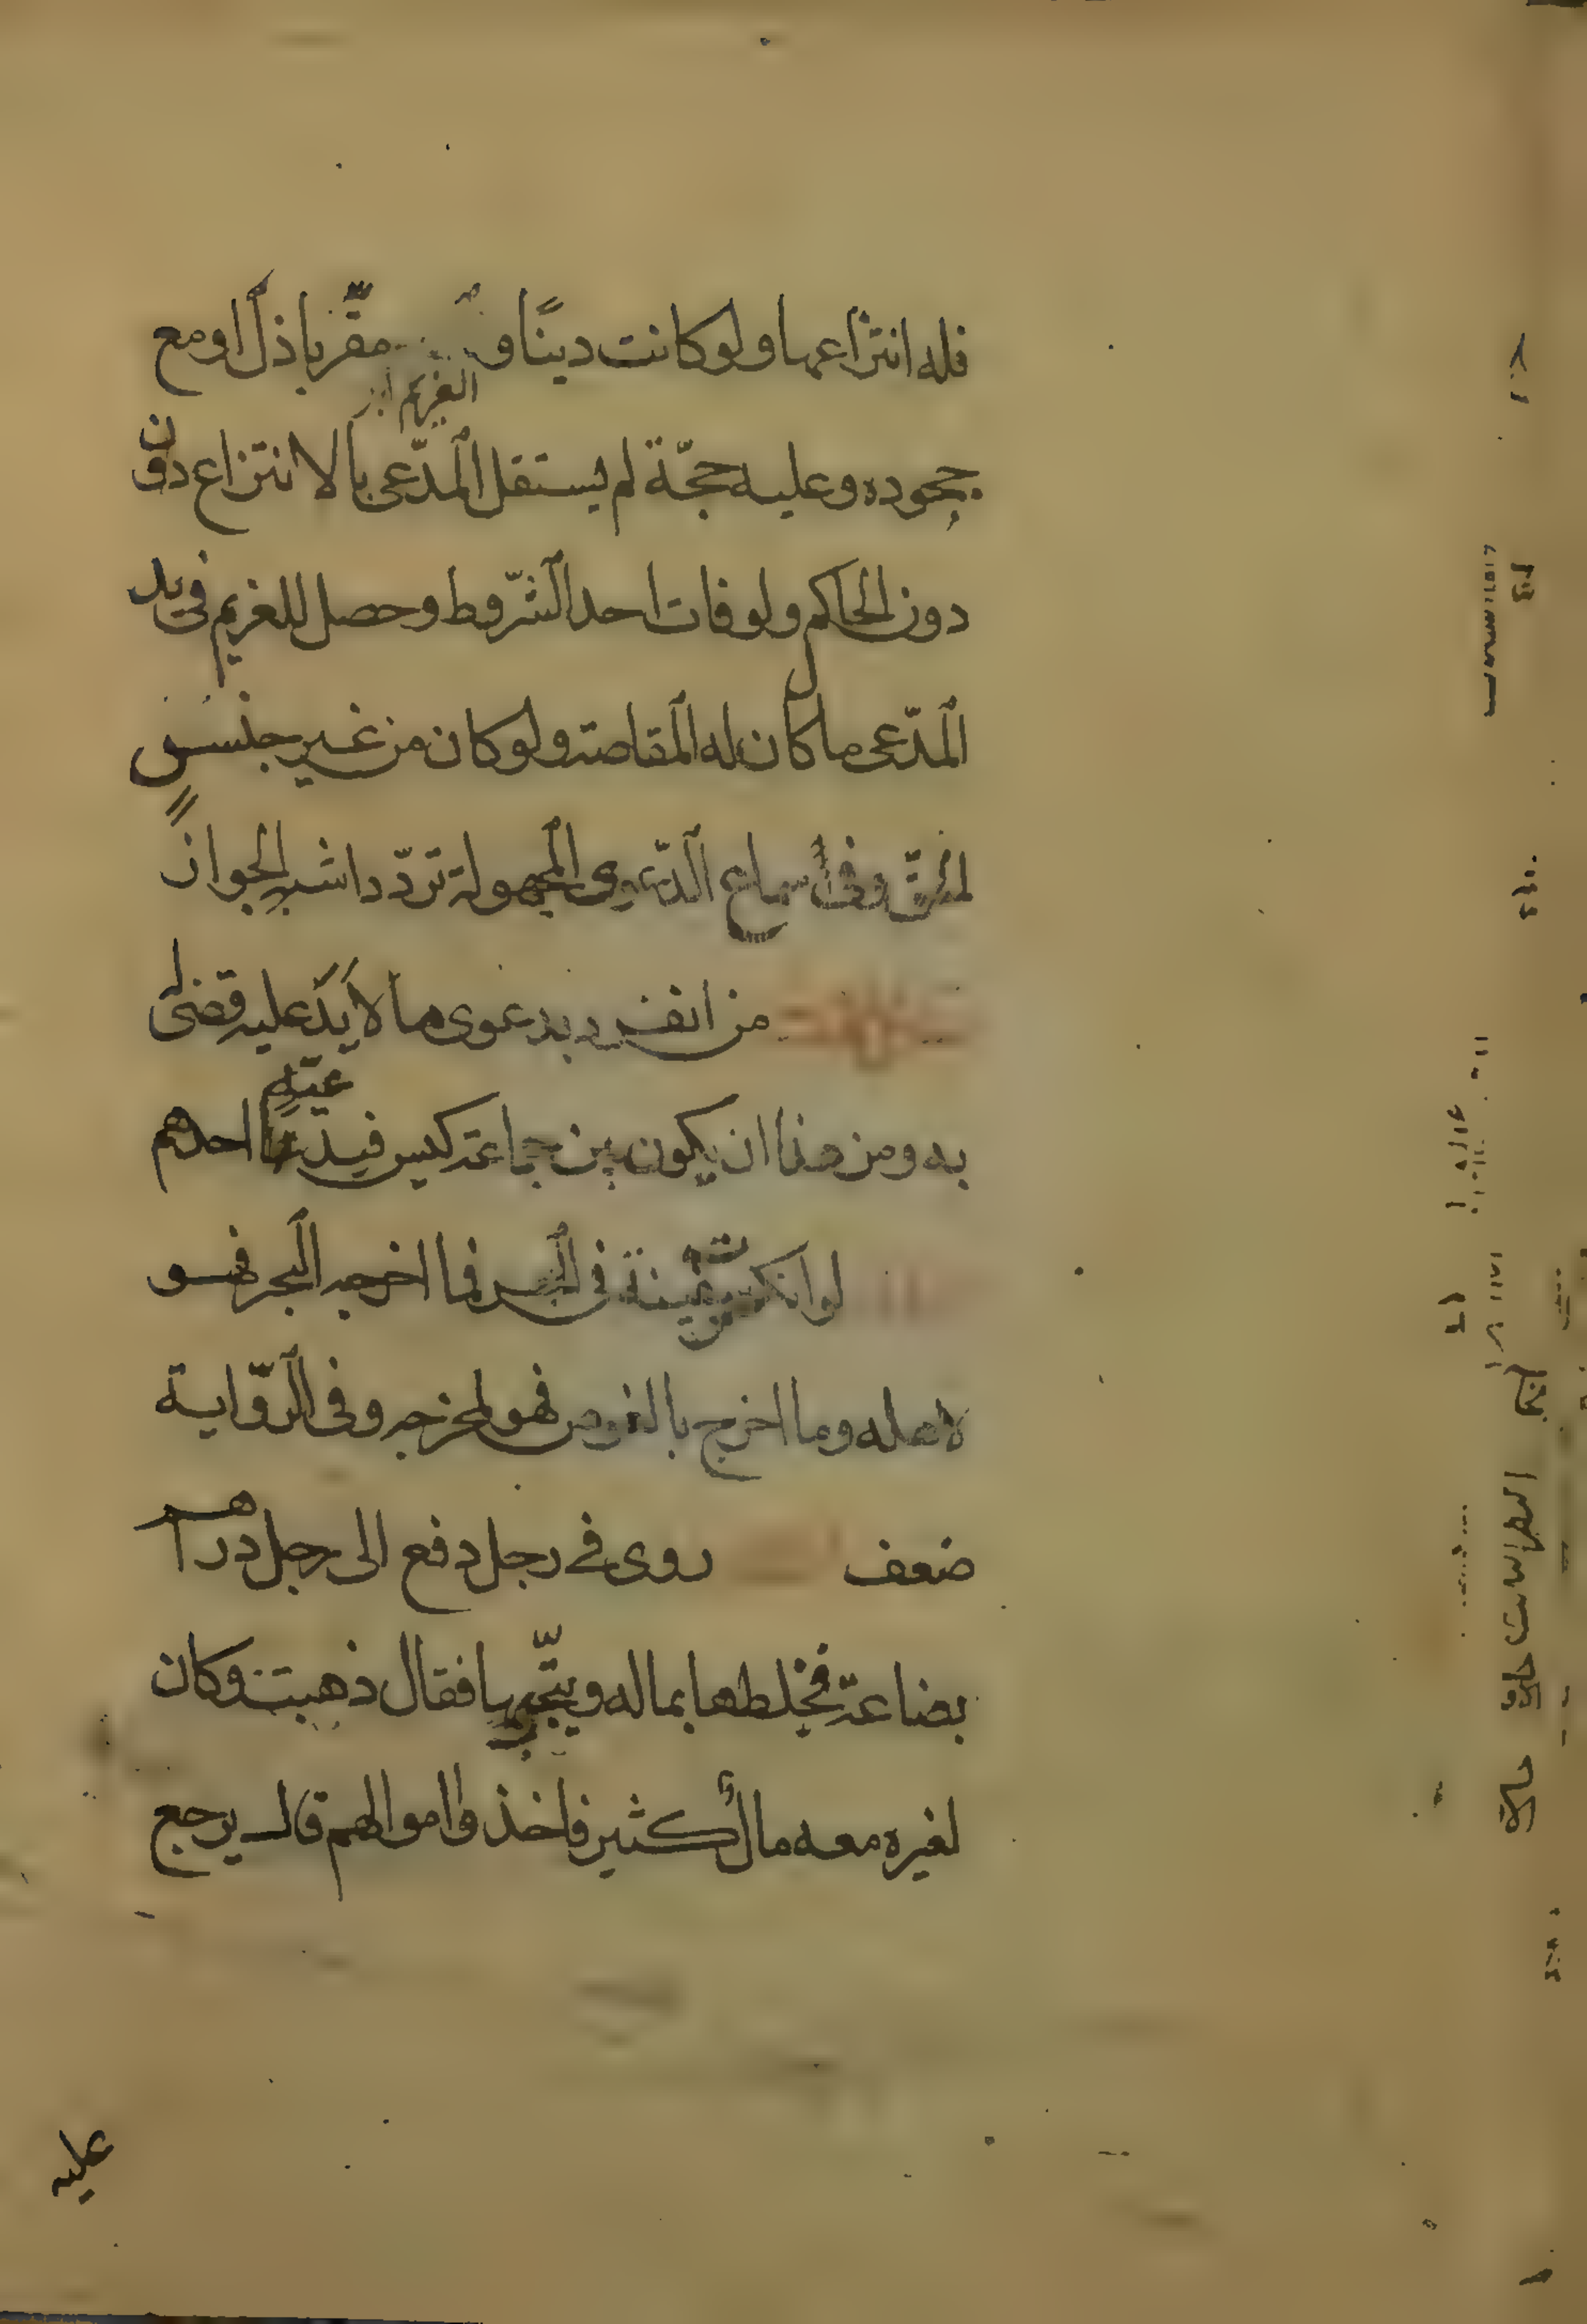 فله انتزاعها ولو كانت دينًا و مقرّ باذل او مع
الغريم
جحوده وعليه حجّة لم يستقل المدّعى بالانتزاع دون
دون الحاكم ولو فات احد الشّروط وحصل للغريم فى يد
المدّعى ما كان له المقاصة ولو كان من غير جنس
الحق وفى سماع الدّعوى المجهولة تردّد اشبه الجواز
من انفرد بدعوى ما لا يد عليه قضى له
به ومن هذا ان يكون بين جماعة كيس فيدّعيه احدهم
لو انكسرت سفينة فى البحر فما اخرجه البحر فهو
لاهله وما اخرج بالغوص فهو لمخرجه وفى الرّواية
ضعف روى فى رجل دفع الى رجل دراهم
بضاعة فخلطها بماله ويتّجر بها فقال ذهبت وكان
لغيره معه مال كثير فاخذوا اموالهم قال يرجع
عليه